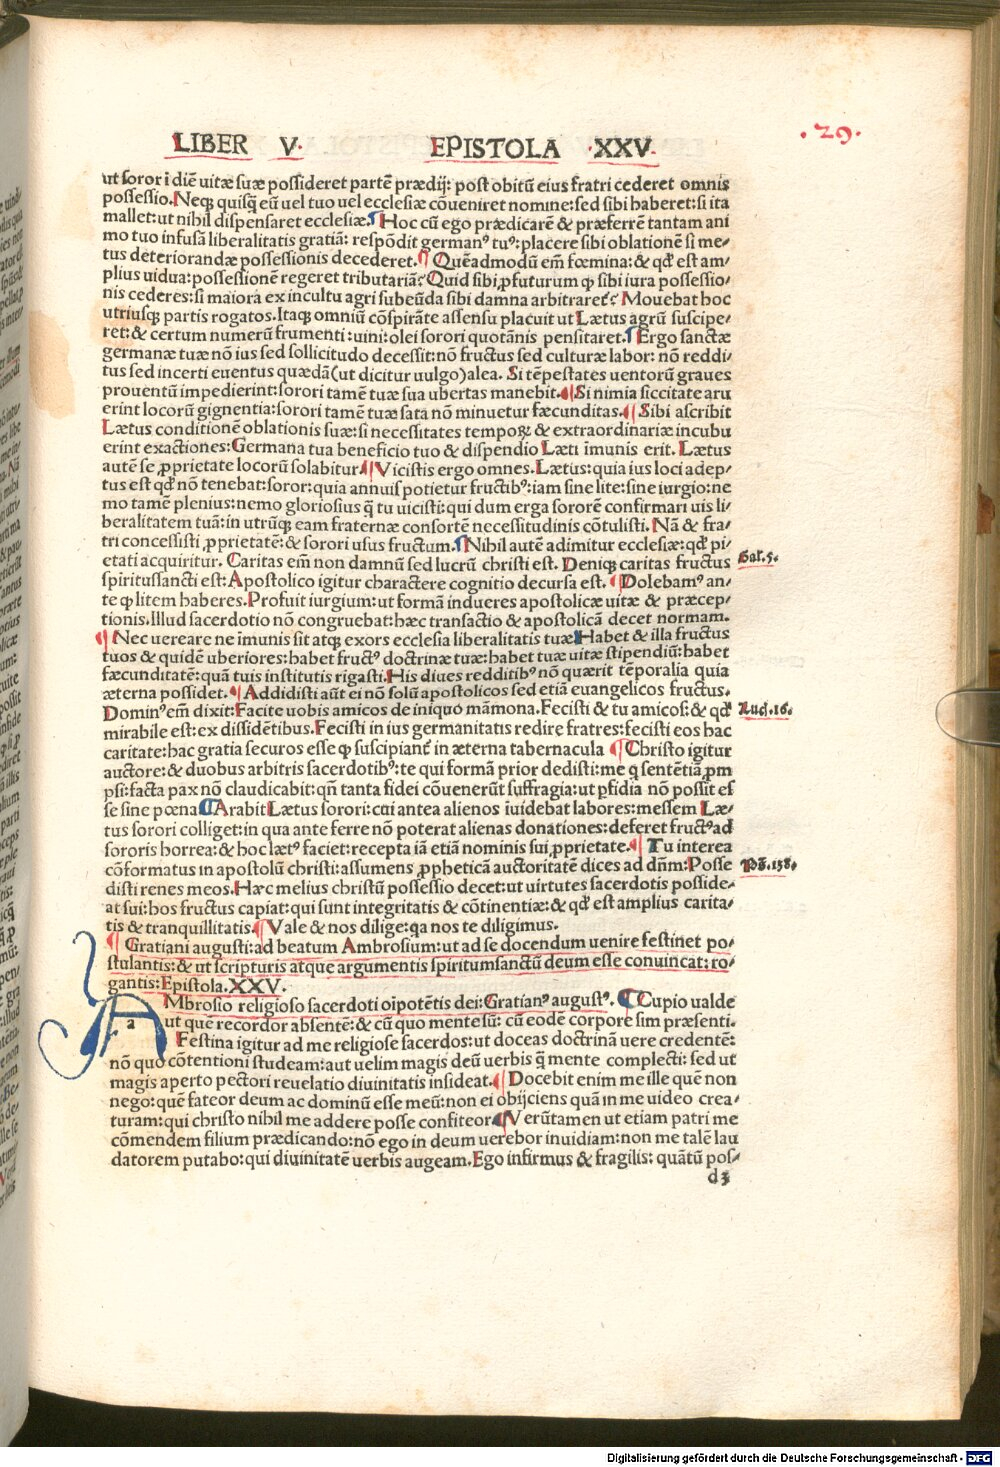 LIBER V. EPISTOLA .XXV.
.29.
ut soror ĩ diẽ uitæ suæ possideret partẽ prædij: post obitũ eius fratri cederet omnis
possessio. Neqꝫ quisq̃ eũ uel tuo uel ecclesiæ cõueniret nomine: sed sibi haberet: si ita
mallet: ut nihil dispensaret ecclesiæ. ¶ Hoc cũ ego prædicarẽ & præferrẽ tantam ani
mo tuo infusã liberalitatis gratiã: respõdit germanꝰ tuꝰ: placere sibi oblationẽ si me⸗
tus deteriorandæ possessionis decederet. ¶ Quẽadmodũ em̃ fœmina: & qđ est am⸗
plius uidua: possessionẽ regeret tributariã? Quid sibi ꝓfuturum ꝙ sibi iura possessio⸗
nis cederes: si maiora ex incultu agri subeũda sibi damna arbitraret᷑? Mouebat hoc
utriusqꝫ partis rogatos. Itaqꝫ omniũ cõspirãte assensu placuit ut Lætus agrũ suscipe⸗
ret: & certum numerũ frumenti: uini: olei sorori quotãnis pensitaret. ¶ Ergo sanctæ
germanæ tuæ nõ ius sed sollicitudo decessit: nõ fructus sed culturæ labor: nõ reddi⸗
tus sed incerti euentus quædã (ut dicitur uulgo) alea. Si tẽpestates uentorũ graues
prouentũ impedierint: sorori tamẽ tuæ sua ubertas manebit. ¶ Si nimia siccitate aru
erint locorũ gignentia: sorori tamẽ tuæ sata nõ minuetur fæcunditas. ¶ Sibi ascribit
Lætus conditionẽ oblationis suæ: si necessitates tempoꝝ & extraordinariæ incubu
erint exactiones: Germana tua beneficio tuo & dispendio Læti ĩmunis erit. Lætus
autẽ se ꝓprietate locorũ solabitur. ¶ Vicistis ergo omnes. Lætus: quia ius loci adep⸗
tus est qđ nõ tenebat: soror: quia annuis potietur fructibꝰ: iam sine lite: sine iurgio: ne
mo tamẽ plenius: nemo gloriosius q̃ tu uicisti: qui dum erga sororẽ confirmari uis li⸗
beralitatem tuã: in utrũqꝫ eam fraternæ consortẽ necessitudinis cõtulisti. Nã & fra⸗
tri concessisti ꝓprietatẽ: & sorori usus fructum. ¶ Nihil autẽ adimitur ecclesiæ: qđ pi⸗
etati acquiritur. Caritas em̃ non damnũ sed lucrũ christi est. Deniqꝫ caritas fructus
Gal. 5.
spiritussancti est: Apostolico igitur charactere cognitio decursa est. ¶ Dolebamꝰ an⸗
te ꝙ litem haberes. Profuit iurgium: ut formã indueres apostolicæ uitæ & præcep⸗
tionis. Illud sacerdotio nõ congruebat: hæc transactio & apostolicã decet normam.
¶ Nec uereare ne ĩmunis sit atqꝫ exors ecclesia liberalitatis tuæ. Habet & illa fructus
tuos & quidẽ uberiores: habet fructꝰ doctrinæ tuæ: habet tuæ uitæ stipendiũ: habet
fæcunditatẽ: quã tuis institutis rigasti. His diues redditibꝰ nõ quærit tẽporalia quia
æterna possidet. ¶ Addidisti aũt ei nõ solũ apostolicos sed etiã euangelicos fructus.
Dominꝰ em̃ dixit: Facite uobis amicos de iniquo mãmona. Fecisti & tu amicos: & qđ
Luc. 16.
mirabile est: ex dissidẽtibus. Fecisti in ius germanitatis redire fratres: fecisti eos hac
caritate: hac gratia securos esse ꝙ suscipiant᷑ in æterna tabernacula ¶ Christo igitur
auctore: & duobus arbitris sacerdotibꝰ: te qui formã prior dedisti: me q̃ sentẽtiã ꝓm
psi: facta pax nõ claudicabit: qñ tanta fidei cõuenerũt suffragia: ut ꝑfidia nõ possit es
se sine pœna ¶ Arabit Lætus sorori: cui antea alienos ĩuidebat labores: messem Læ⸗
tus sorori colliget: in qua ante ferre nõ poterat alienas donationes: deferet fructꝰ ad
sororis horrea: & hoc lætꝰ faciet: recepta iã etiã nominis sui ꝓprietate. ¶ Tu interea
cõformatus in apostolũ christi: assumens ꝓpheticã auctoritatẽ dices ad dñm: Posse
Ps̃. 138.
disti renes meos. Hæc melius christũ possessio decet: ut uirtutes sacerdotis posside⸗
at sui: hos fructus capiat: qui sunt integritatis & cõtinentiæ: & qđ est amplius carita⸗
tis & tranquillitatis. ¶ Vale & nos dilige: qa nos te diligimus.
¶ Gratiani augusti: ad beatum Ambrosium: ut ad se docendum uenire festinet po⸗
stulantis: & ut scripturis atque argumentis spiritumsanctũ deum esse conuincat: ro⸗
gantis: Epistola. XXV.
a Mbrosio religioso sacerdoti oĩpotẽtis dei: Gratianꝰ augustꝰ. ¶ Cupio ualde
ut quẽ recordor absentẽ: & cũ quo mente sũ: cũ eodẽ corpore sim præsenti.
Festina igitur ad me religiose sacerdos: ut doceas doctrinã uere credentẽ:
nõ quo cõtentioni studeam: aut uelim magis deũ uerbis q̃ mente complecti: sed ut
magis aperto pectori reuelatio diuinitatis insideat. ¶ Docebit enim me ille quẽ non
nego: quẽ fateor deum ac dominũ esse meũ: non ei obijciens quã in me uideo crea⸗
turam: qui christo nihil me addere posse confiteor. ¶ Verũtamen ut etiam patri me
cõmendem filium prædicando: nõ ego in deum uerebor inuidiam: non me talẽ lau
datorem putabo: qui diuinitatẽ uerbis augeam. Ego infirmus & fragilis: quãtũ pos⸗
d3
Digitalisierung gefördert durch die Deutsche Forschungsgemeinschaft - DFG